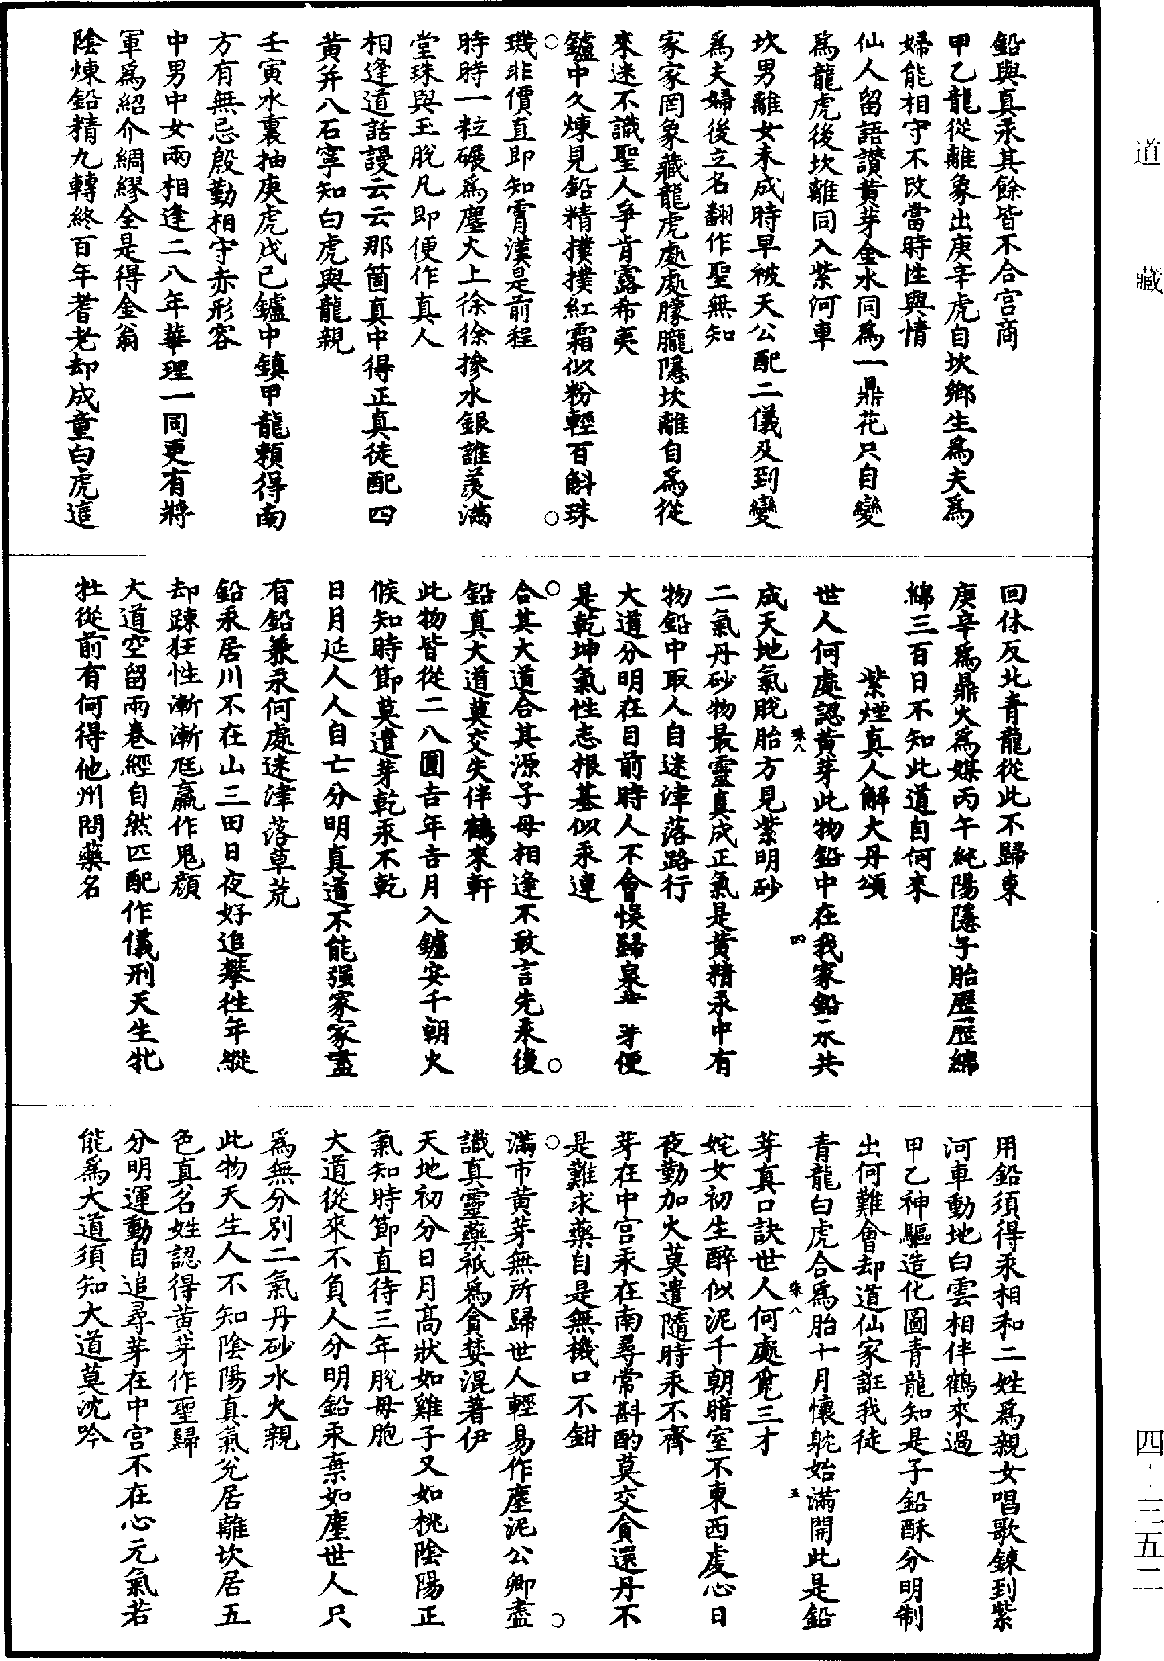 道藏
鉛與真汞其餘皆不合宮商
甲乙龍從離象出庚辛虎自坎鄉生爲夫爲
婦能相守不改當時性與情
仙人留語讚黃芽金水同爲一鼎花只自變
爲龍虎後坎離同入紫河車
坎男離女未成時早被天公配二儀及到變
爲夫婦後立名翻作聖無知
家家罔象藏龍虎處處朦朧隱坎離自爲從
來迷不識聖人爭肯露希夷
鑪中久煉見鉛精撲撲紅霜似粉輕百斛珠
璣非價直即知霄漢是前程
時時一粒碾爲塵火上徐徐摻水銀誰羨滿
堂珠與玉脫凡即便作真人
相逢道話謾云云那箇真中得正真徒配四
黃并八石寧知白虎與龍親
壬寅水裏抽庚虎戊己鑪中鎮甲龍賴得南
方有無忌殷勤相守赤形容
中男中女兩相逢二八年華理一同更有將
軍爲紹介綢繆全是得金翁
陰煉鉛精九轉終百年耆老却成童白虎這
回休反北青龍從此不歸東
庚辛爲鼎火爲媒丙午純陽隱子胎歷歷綿
綿三百日不知此道自何來
紫煙真人解大丹頌
世人何處認黃芽此物鉛中在我家鉛汞共
成天地氣脫胎方見紫明砂
二氣丹砂物最靈真成正氣是黃精汞中有
物鉛中取人自迷津落路行
大道分明在目前時人不會悞歸泉芽便
是乾坤氣性志根基似汞連
合其大道合其源子母相逢不敢言先汞後
鉛真大道莫交失伴鶴來軒
此物皆從二八圓吉年吉月入鑪安千朝火
候知時節莫遣芽乾汞不乾
日月延人人自亡分明真道不能强家家盡
有鉛兼汞何處迷津落草荒
鉛汞居川不在山三田日夜好追攀往年縱
却踈狂性漸漸尫羸作鬼顔
大道空留兩卷經自然匹配作儀刑天生牝
牡從前有何得他州問藥名
用鉛須得汞相和二姓爲親女唱歌鍊到紫
河車動地白雲相伴鶴來過
甲乙神驅造化圖青龍知是子鉛酥分明制
出何難會却道仙家誑我徒
青龍白虎合爲胎十月懷躭始滿開此是鉛
芽真口訣世人何處覓三才
姹女初生醉似泥千朝暗室不東西虔心日
夜勤加火莫遣隨時汞不齊
芽在中宮汞在南尋常斟酌莫交貪還丹不
是難求藥自是無機口不鉗
滿市黃芽無所歸世人輕易作塵泥公卿盡
識真靈藥祗爲貪婪混著伊
天地初分日月高狀如雞子又如桃陰陽正
氣知時節直待三年脫母胞
大道從來不負人分明鉛汞棄如塵世人只
爲無分別二氣丹砂水火親
此物天生人不知陰陽真氣兌居離坎居五
色真名姓認得黃芽作聖歸
分明運動自追尋芽在中宮不在心元氣若
能爲大道須知大道莫沈吟
四·三五二